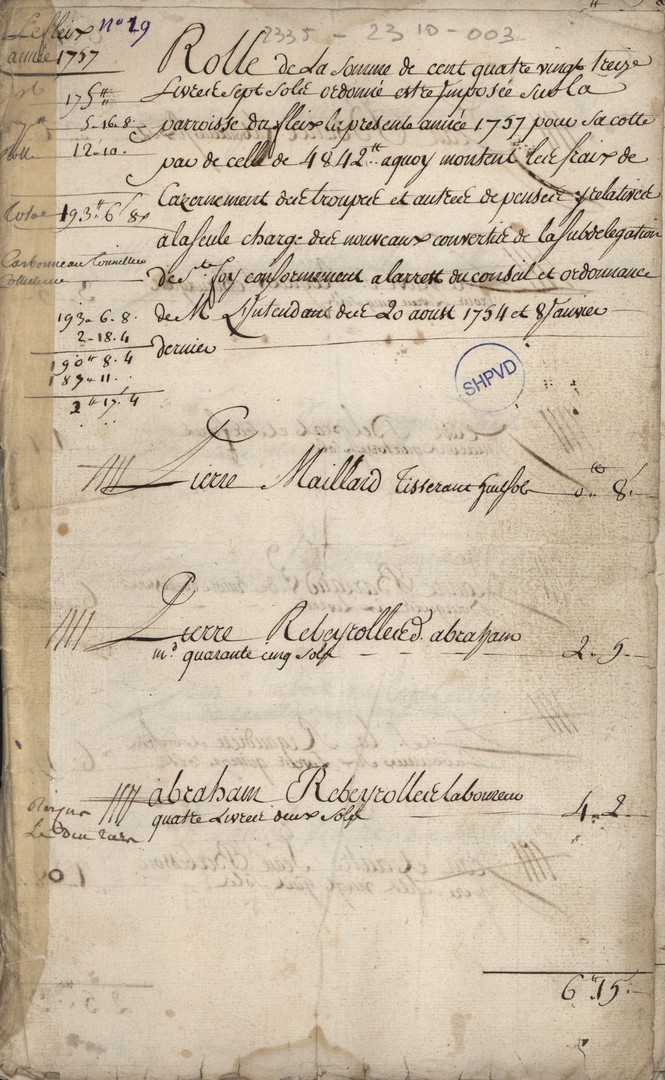 Lefleix n° 19
année 1757
2335 - 23 10 - 003
Rolle de La Somme de cent quatre vingt treize
Livres sept Sols ordonné estre Imposée sur la
parroisse du fleix la presente année 1757 pour sa cotte
part de celle de 4842 tt aquoy montent les fraix de
Cazernement des trouppes et autres depenses y relatives
a la seule charge des nouveaux convertis de la subdelegation
de Ste foy conformement a larrest du conseil et ordonnance
de Mr L'Intendant des 20 aoust 1754 et 8 Janvier
dernier
175 tt
5-16-8
Rolle 12-10
Total 193 tt 6 s 8 d
Carbonneau
Collecteur
193-6-8
2-18-4
190 tt 8-4
187-11
2 tt 17-4
SHPVD
Pierre Maillard Tisserant huit sols 0 tt 8 s
Pierre Rebeyrolles d. abraham
md quarante cinq sols 2-5
abraham Rebeyrolles laboureur
quatre Livres deux sols 4-2
6 tt 15 s